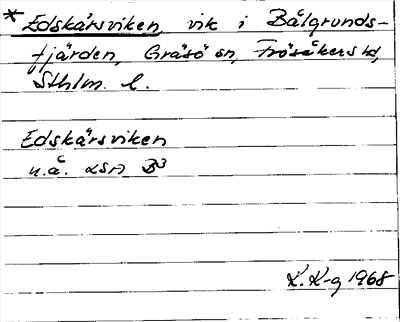 * Edskärsviken, vik i Bålgrunds-
fjärden, Gräsö sn, Frösåkers hd,
Sthlm. l.
Edskärsviken
u.å. LSA B3
K. K-g 1968